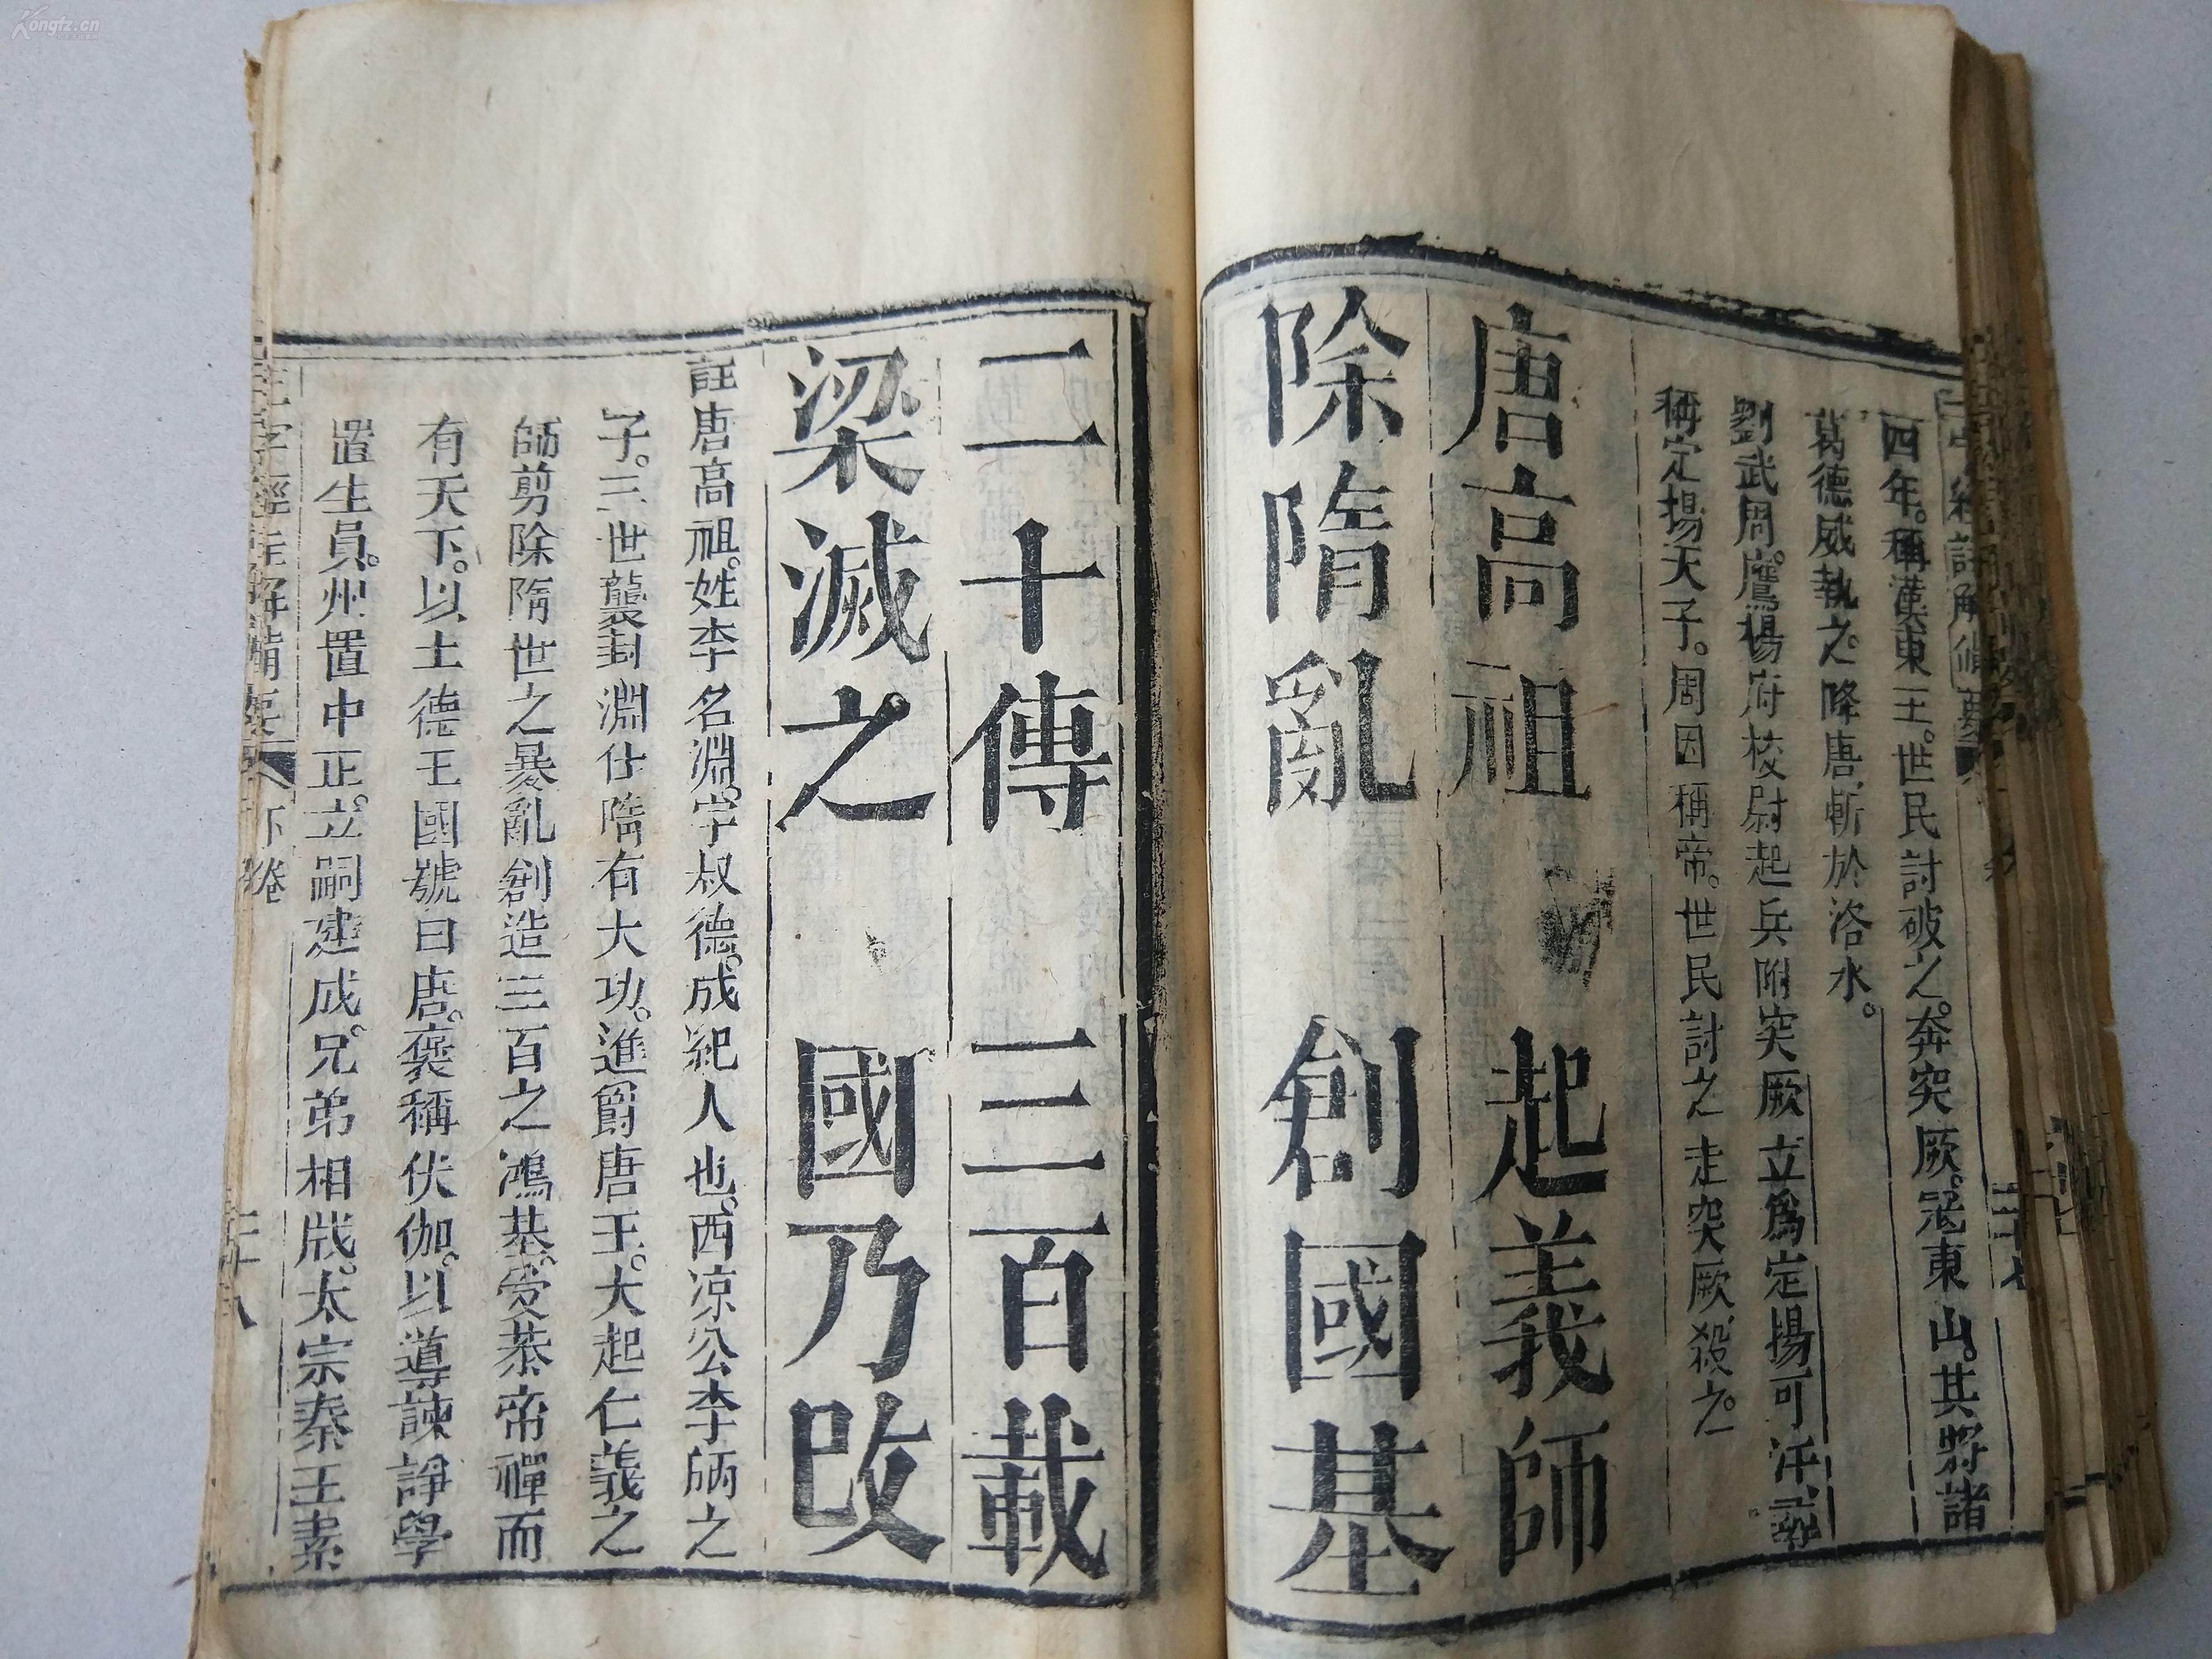 四年。稱漢東王。世民討破之。奔突厥。寇東山。其將諸
葛德威執之。降唐。斬於洛水。
劉武周。鷹揚府校尉起兵附突厥立爲定揚可汗
稱定揚天子。周因稱帝。世民討之走突厥殺之。
唐高祖 起義師
除隋亂 創國基
二十傳 三百載
梁滅之 國乃改
註唐高祖。姓李名淵。字叔德。成紀人也。西凉公李昞之
子。三世襲封淵仕隋有大功。進爵唐王。大起仁義之
師剪除隋世之暴亂創造三百之鴻基。受恭帝禪而
有天下。以土德王國號曰唐。褒稱伏伽。以導諫諍學
置生員。州置中正。立嗣建成。兄弟相戕。太宗秦王素
三字經註解備要 下卷 二十八
Kongfz.cn